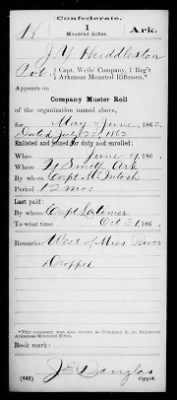 Confederate.
H 1 Ark.
Mounted Rifles.
J. Y. Huddleston
Pvt, Capt. Wells' Company, 1 Reg't
Arkansas Mounted Riflemen.*
Appears on
Company Muster Roll
of the organization named above,
for May & June, 1862.
Dated July 22 1862
Enlisted and joined for duty and enrolled:
When June 9, 186 .
Where Ft Smith Ark
By whom Capt McIntosh
Period 12 mos
Last paid:
By whom Capt Latimer
To what time Oct 31, 186 .
Remarks: West of Miss River
Dropped
*This company was also known as Company E, 1st Regiment
Arkansas Mounted Rifles.
Book mark:
J E Douglas
(642) Copyist.